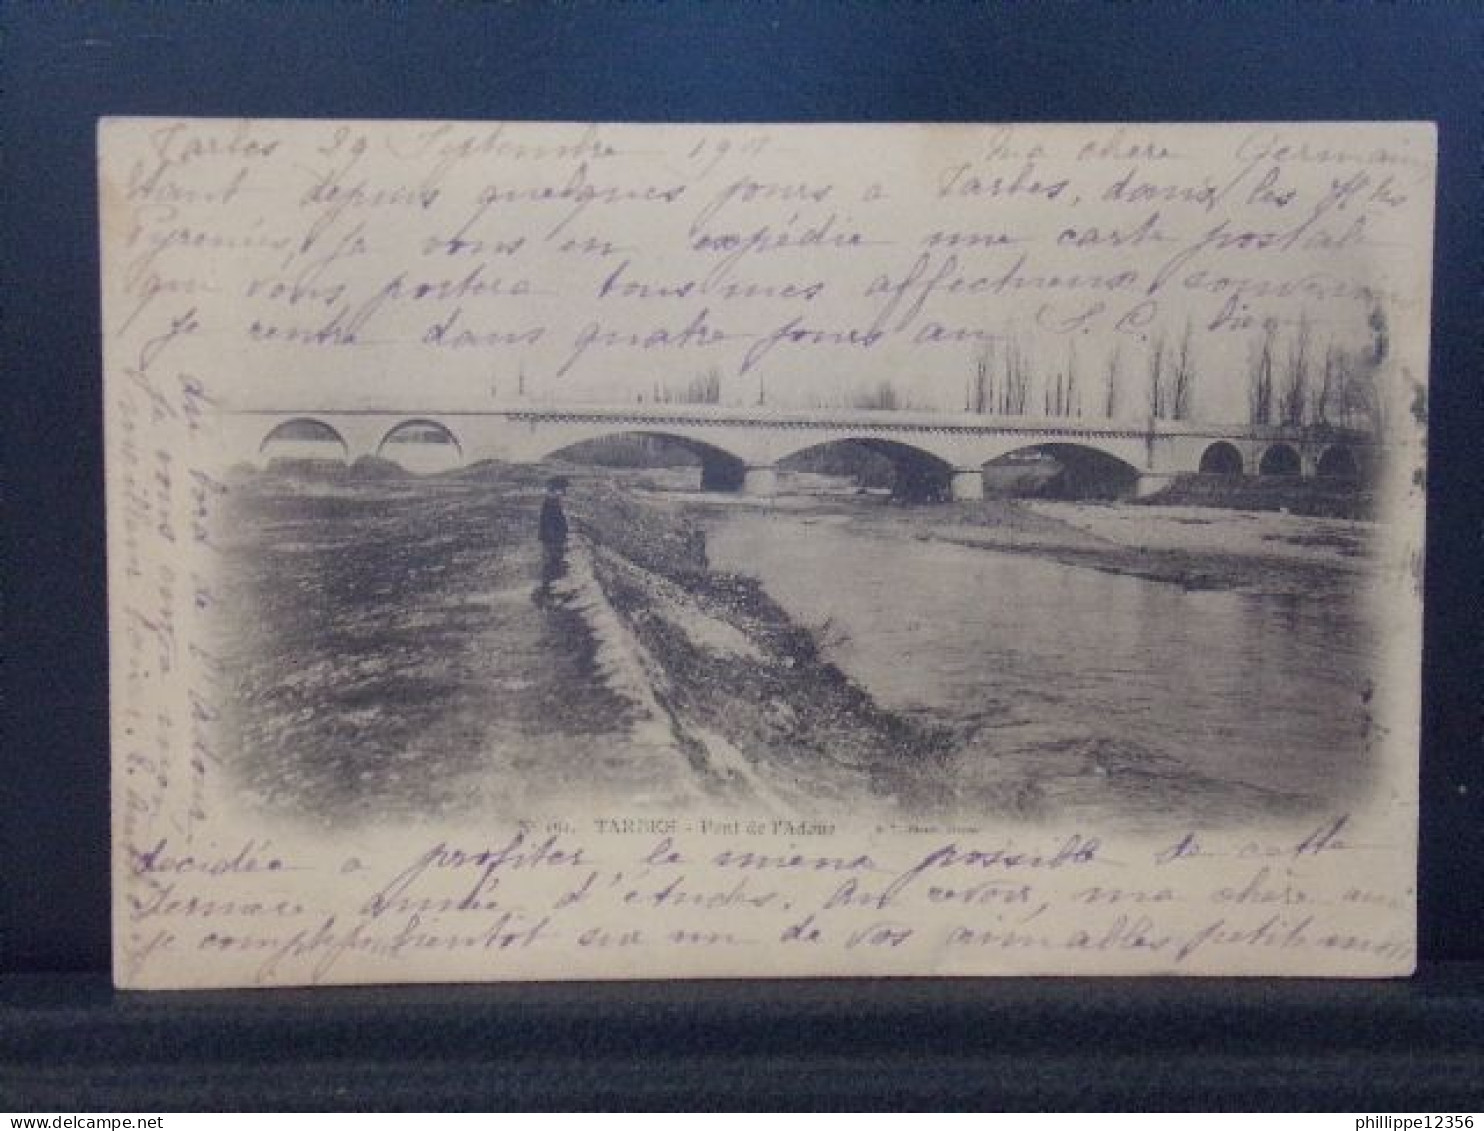 Tarbes 29 Septembre 19 Ma chère Germaine
Étant depuis quelques jours a Tarbes, dans les Htes
Pyrenées, je vous en expédie une carte postale
qui vous portera tous mes affectueux souvenirs
Je rentre dans quatre jours au S. C. bien
décidée a profiter le mieux possible de cette
dernière année d'études. Au revoir, ma chère amie
je compte bientôt sur un de vos aimables petits mots
Je vous
du bord de l'Adour
No 191. TARBES - Pont de l'Adour
phillippe12356